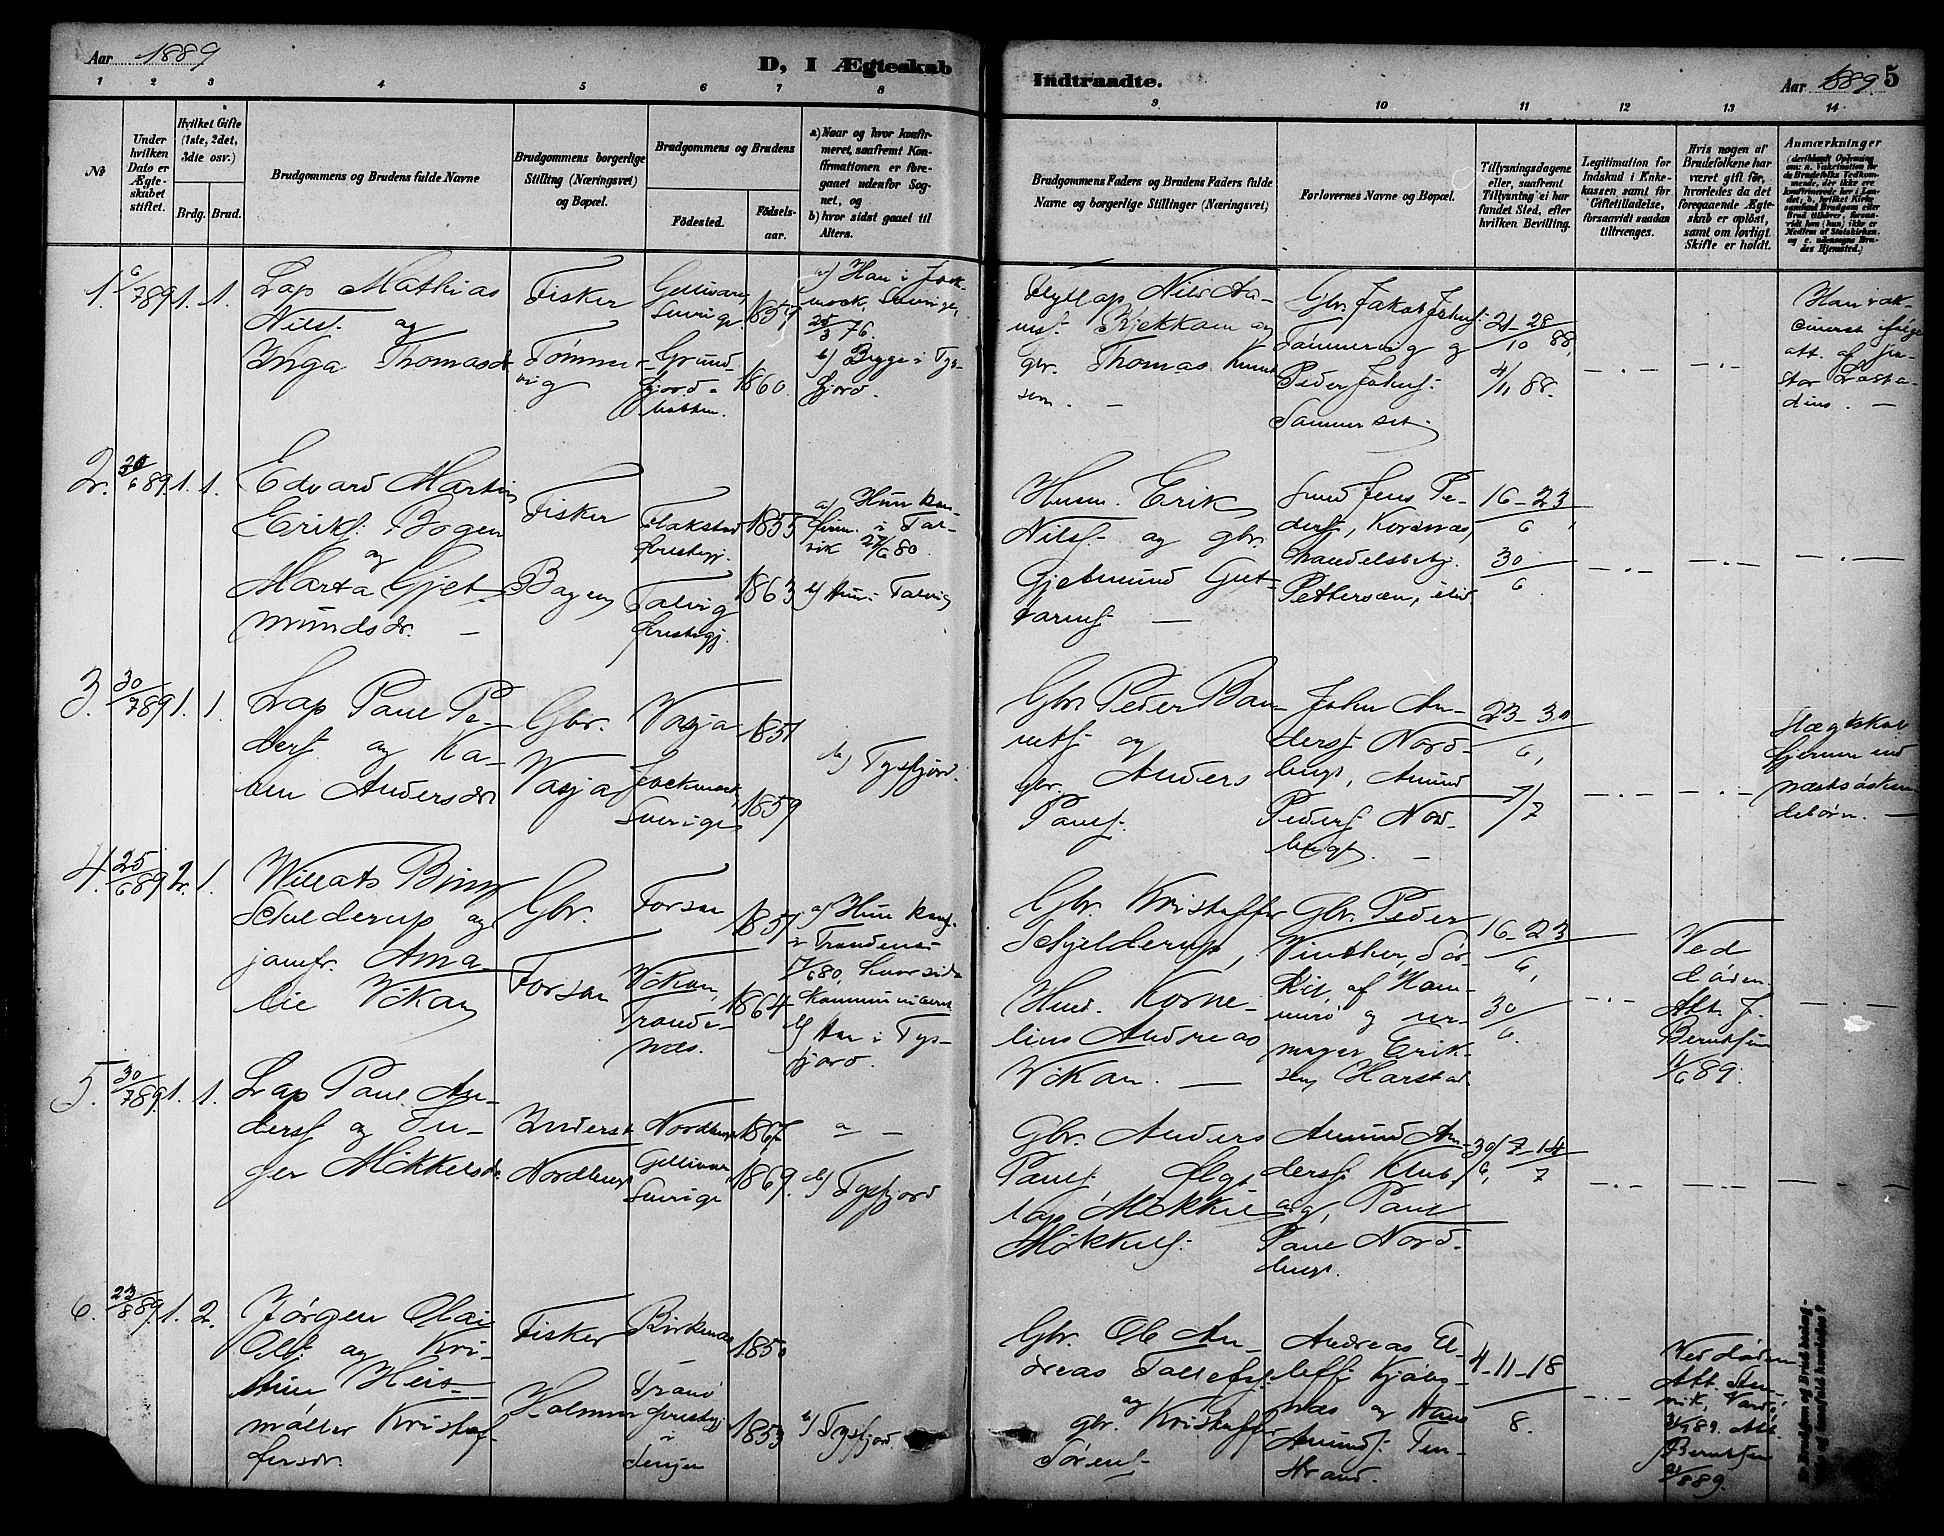 Aar 1889
D, I Ægteskab
Indtraadte.
Aar 1889
5
1 2 3 4 5 6 7 8 9 10 11 12 13 14
No
Under hvilken Dato er Ægteskabet stiftet.
Hvilket Gifte (1ste, 2det, 3die osv.)
Brdg. Brud.
Brudgommens og Brudens fulde Navne
Brudgommens borgerlige Stilling (Næringsvei) og Bopæl.
Brudgommens og Brudens
Fødested.
Fødsels-aar.
a) Naar og hvor konfirmeret, saafremt Konfirmationen er foregaaet udenfor Sognet, og
b) hvor sidst gaaet til Alters.
Brudgommens Faders og Brudens Faders fulde Navne og borgerlige Stillinger (Næringsvei)
Forlovernes Navne og Bopæl.
Tillysningsdagene eller, saafremt Tillysning ei har fundet Sted, efter hvilken Bevilling.
Legitimation for Indskud i Enkekassen samt for Giftetilladelse, forsaavidt saadan tiltrænges.
Hvis nogen af Brudefolkene har været gift før, hvorledes da det foregaaende Ægteskab er opløst, samt om lovligt Skifte er holdt.
Anmærkninger
1. 6/7 89. 1. 1.
Lap Mathias
Nilss. og
Inga Thomasdr
Fisker
Tømmer-
vig
Gellivare
Sverige
1857
Grund-
fjord-
botten.
1860.
a) Han i Jock-
mock, Sverige,
25/3 76.
b) Begge i Tys-
fjord.
Flytlap, Nils
Kjekkam og
Gbr. Thomas Knud
sen. —
Gbr. Jakob Johns.
Tømmervig og
Peder Johns.
Sommerset.
21-28/10 88,
4/11 88.
Han vak-
cineret ifølge
att. af
Læsta-
dius. —
2. 30/6 89. 1. 1.
Edvard Martin
Eriks. Bogen
og
Marta Gjet-
mundsdr. —
Fisker
Bogen
Flakstad
Præstegj.
1855
Talvig
Præstegj.
1863
a) Hun kon-
firm. i Tal-
vik 27/6 80.
b) Hun i Talvig
Husm. Erik
Nilss. og gbr.
Gjetmund Gut-
tarms. —
Jens Pe-
ders., Korsnæs,
handelsbetj.
Pettersen,
16-23/6,
30/6.
3. 30/7 89. 1. 1.
Lap Paul Pe-
ders. og Ka-
ren Andersdr
Gbr.
Vasja
Vasja
1851
Jockmock,
Sverige
1859
b) Tysfjord.
Gbr. Peder
og
gbr. Anders
Pauls.
John An-
ders. Nord-
bugt, Amund
Peders. Nord-
bugt. —
23-30/6,
7/7
Slægtskab
fjernere end
næstsøsken-
debørn. —
4. 25/6 89. 2. 1.
Willats Bing
Schelderup og
jomfr. Ama-
lie Vikan
Gbr.
Forsaa
Forsaa
1857
Vikan,
Trande-
næs.
1864
a) Hun konf.
i Trandenæs
/6 80, hvor sidst
kommuniceret
b) Han i Tys-
fjord.
Gbr. Kristoffer
Schjelderup,
Husm. Korne-
lius Andreas
Vikan. —
Gbr. Peder
Vinther,
af Ham-
merø og ur-
mager Erik-
sen Harstad.
16-23/6,
30/6.
Ved
døden.
Att. J.
Berntsen
11/6 89.
5. 30/7 89. 1. 1.
Lap Paul An-
ders. og In-
ger Mikkelsdr.
Inderst
Nordbugt
Nordbugt
1867
Gellivare
Sverige
1869.
a —
b) Tysfjord
Gbr. Anders
Pauls.
lap Mikkel
Mikkels.
Amund An-
ders. Klub,
og Paul
Paul Nord-
bugt.
30/6, 7-14/7
6. 23/8 89. 1. 2.
Jørgen Olai
Ols. og Kri-
stine Heis-
møller Kristof-
fersdr.
Fisker
Holmen
Birkenæs
1850
Tranø
Præstegj.
i
Senjen
1853
b) Tysfjord.
Gbr. Ole An-
dreas Tollefs.
og
gbr. Kristoffer
Sørens.
Andreas El-
leffs. Kjøbs-
næs og Hans
Amunds. Ten-
strand.
4-11-18/8.
Ved døden
Att.
Vardø
89. Att.
Berntsen
/8 89.